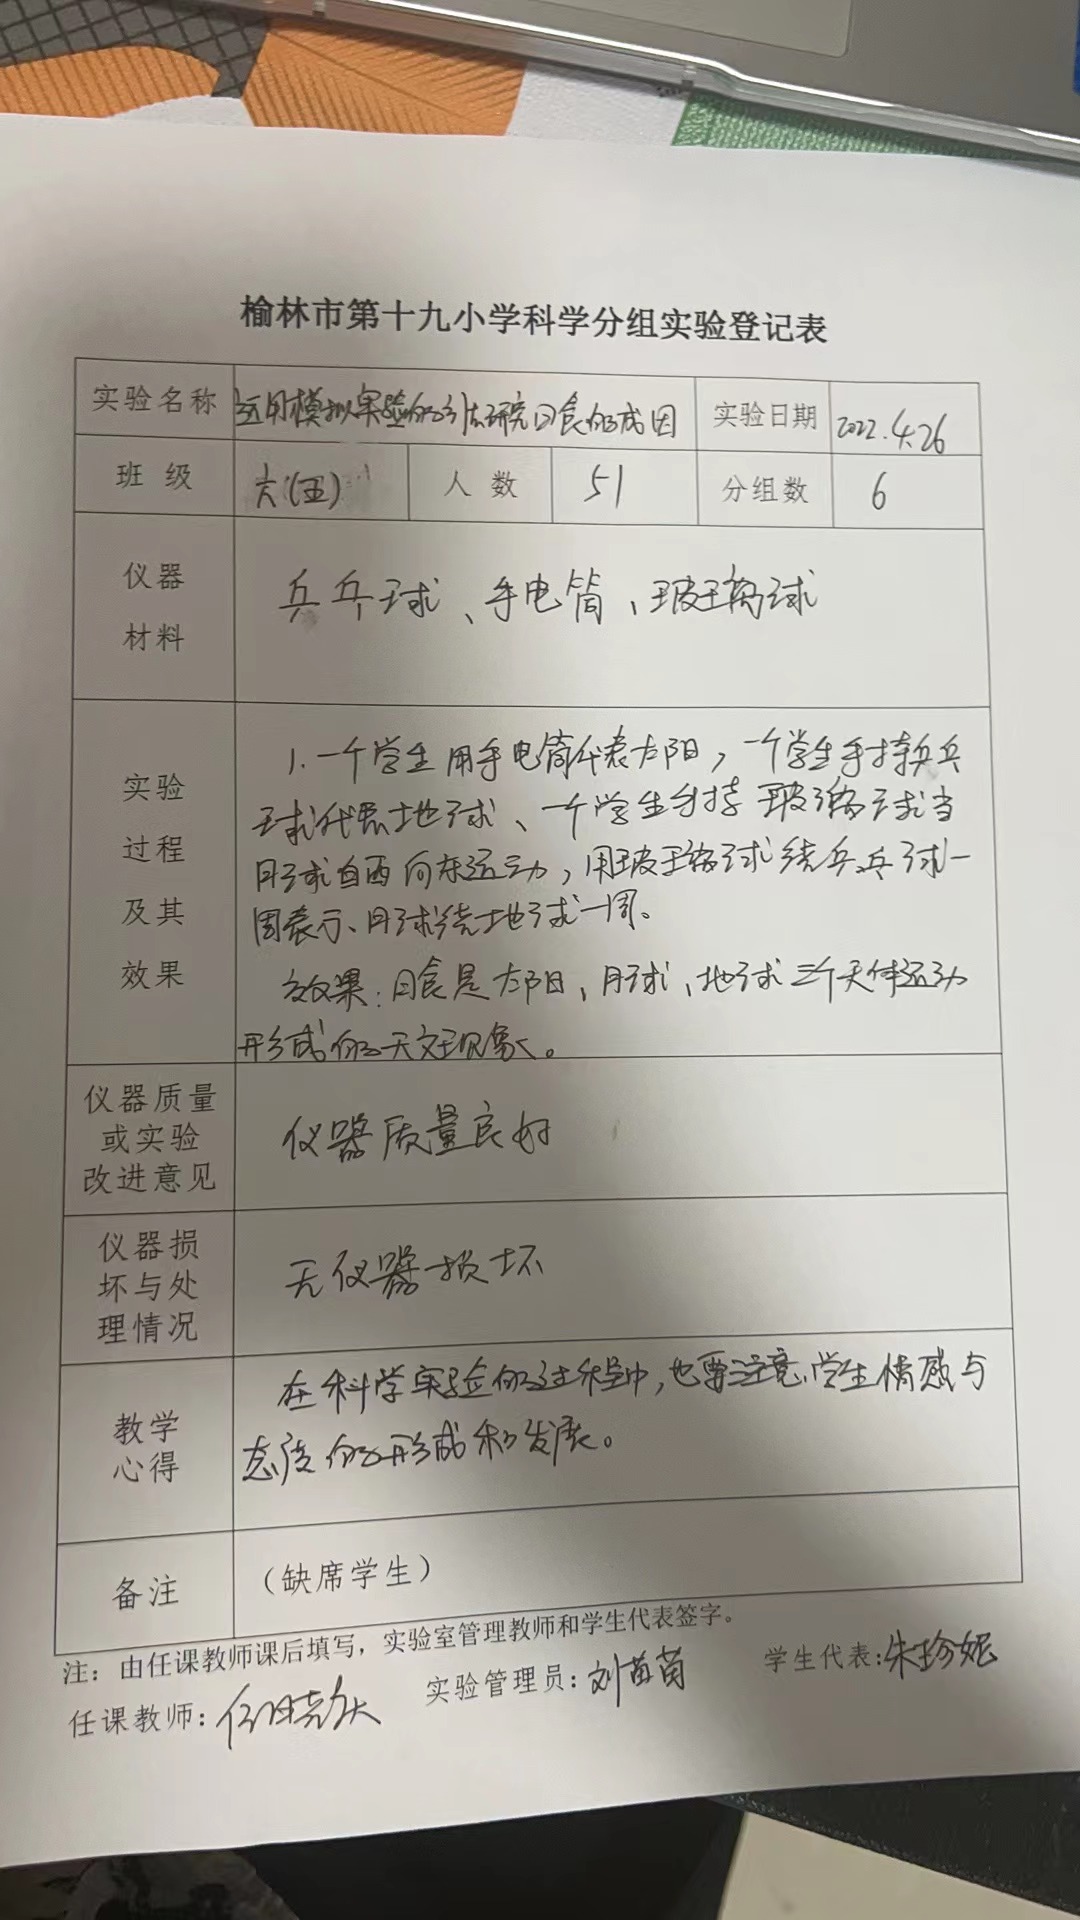 榆林市第十九小学科学分组实验登记表
实验名称 运用模拟实验的方法研究日食的成因 实验日期 2022.4.26
班级 六(五) 人数 51 分组数 6
仪器
材料
乒乓球、手电筒、玻璃球
实验
过程
及其
效果
1.一个学生用手电筒代表太阳，一个学生手持乒乓
球代表地球、一个学生手持玻璃球当
月球自西向东运动，用玻璃球绕乒乓球一
周表示、月球绕地球一周。
效果：日食是太阳、月球、地球三个天体运动
形成的天文现象。
仪器质量
或实验
改进意见
仪器质量良好
仪器损
坏与处
理情况
无仪器损坏
教学
心得
在科学实验的过程中，也要注意学生情感与
态度的形成和发展。
备注 （缺席学生）
注：由任课教师课后填写，实验室管理教师和学生代表签字。
任课教师： 实验管理员：刘苗苗 学生代表：朱珍妮